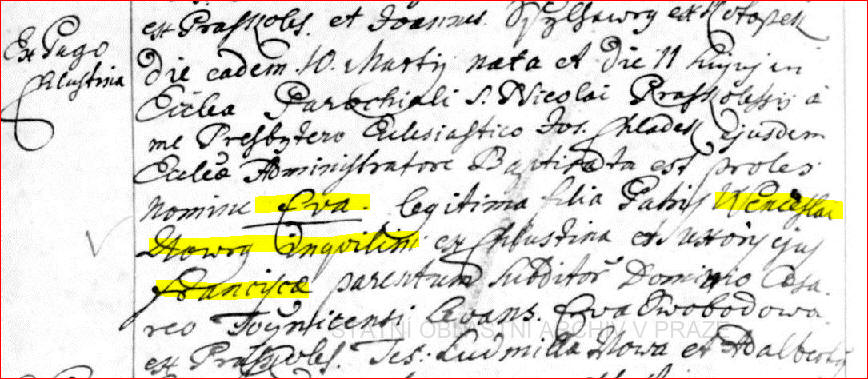 ex Praskoles. et Joannes
Ex Pago
Chlustina
die eadem 10. Martij nata et die 11 hujus in
Ecclea Parochiali S. Nicolai Praskolessij à
me Presbytero Eclesiastico Jos. Chladek ejusdem
Eccleæ Administratore Baptizata est proles
nomine Eva. legitima filia Patris Wenceslai
Nowey inquilini ex Chlustina et uxoris ejus
Franciscæ parentum subditor Dominio Cesa-
reo Toynicensi Levans. Eva Swobodowa
ex Praskoles. Tes: Ludmilla Nowa et Adalbertus
STÁTNÍ OBLASTNÍ ARCHIV V PRAZE